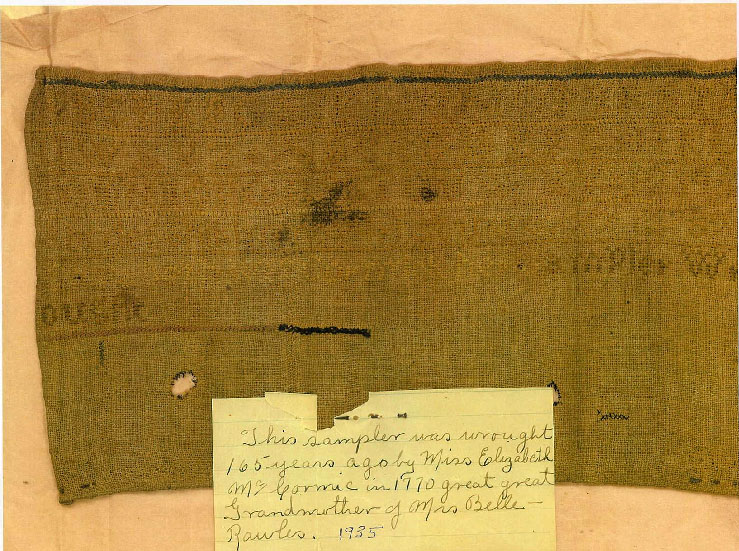 ampler W
ough
This sampler was wrought
165 years ago by Miss Elizabeth
Mc Cormic in 1770 great great
Grandmother of Mrs Belle-
Rawles. 1935